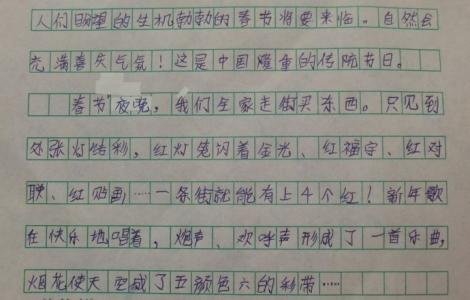 人们盼望的生机勃勃的春节将要来临。自然会
充满喜庆气氛！这是中国隆重的传统节日。
春节“夜晚”，我们全家走街买东西。只见到
处张灯结彩，红灯笼闪着金光、红福字、红对
联、红贴画……一条街就能有上4个红！新年歌
在快乐地唱着，炮声、欢呼声形成了一首乐曲，
烟花使天空成了五颜色六的彩带……